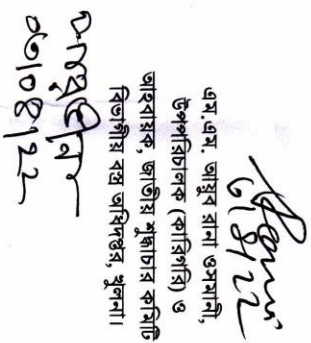 ৩/৪/২২
এস.এম. আব্দুর রানা ওসমানী,
উপপরিচালক (কারিগরি) ও
আহবায়ক, জাতীয় শুদ্ধাচার কমিটি
বিভাগীয় বস্ত্র অধিদপ্তর, খুলনা।
০৩/০৪/২২